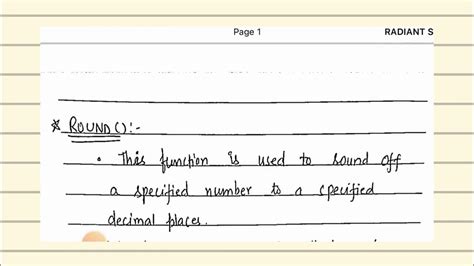 Page 1 RADIANT S
* ROUND():-
• This function is used to sound off
a specified number to a specified
decimal places.